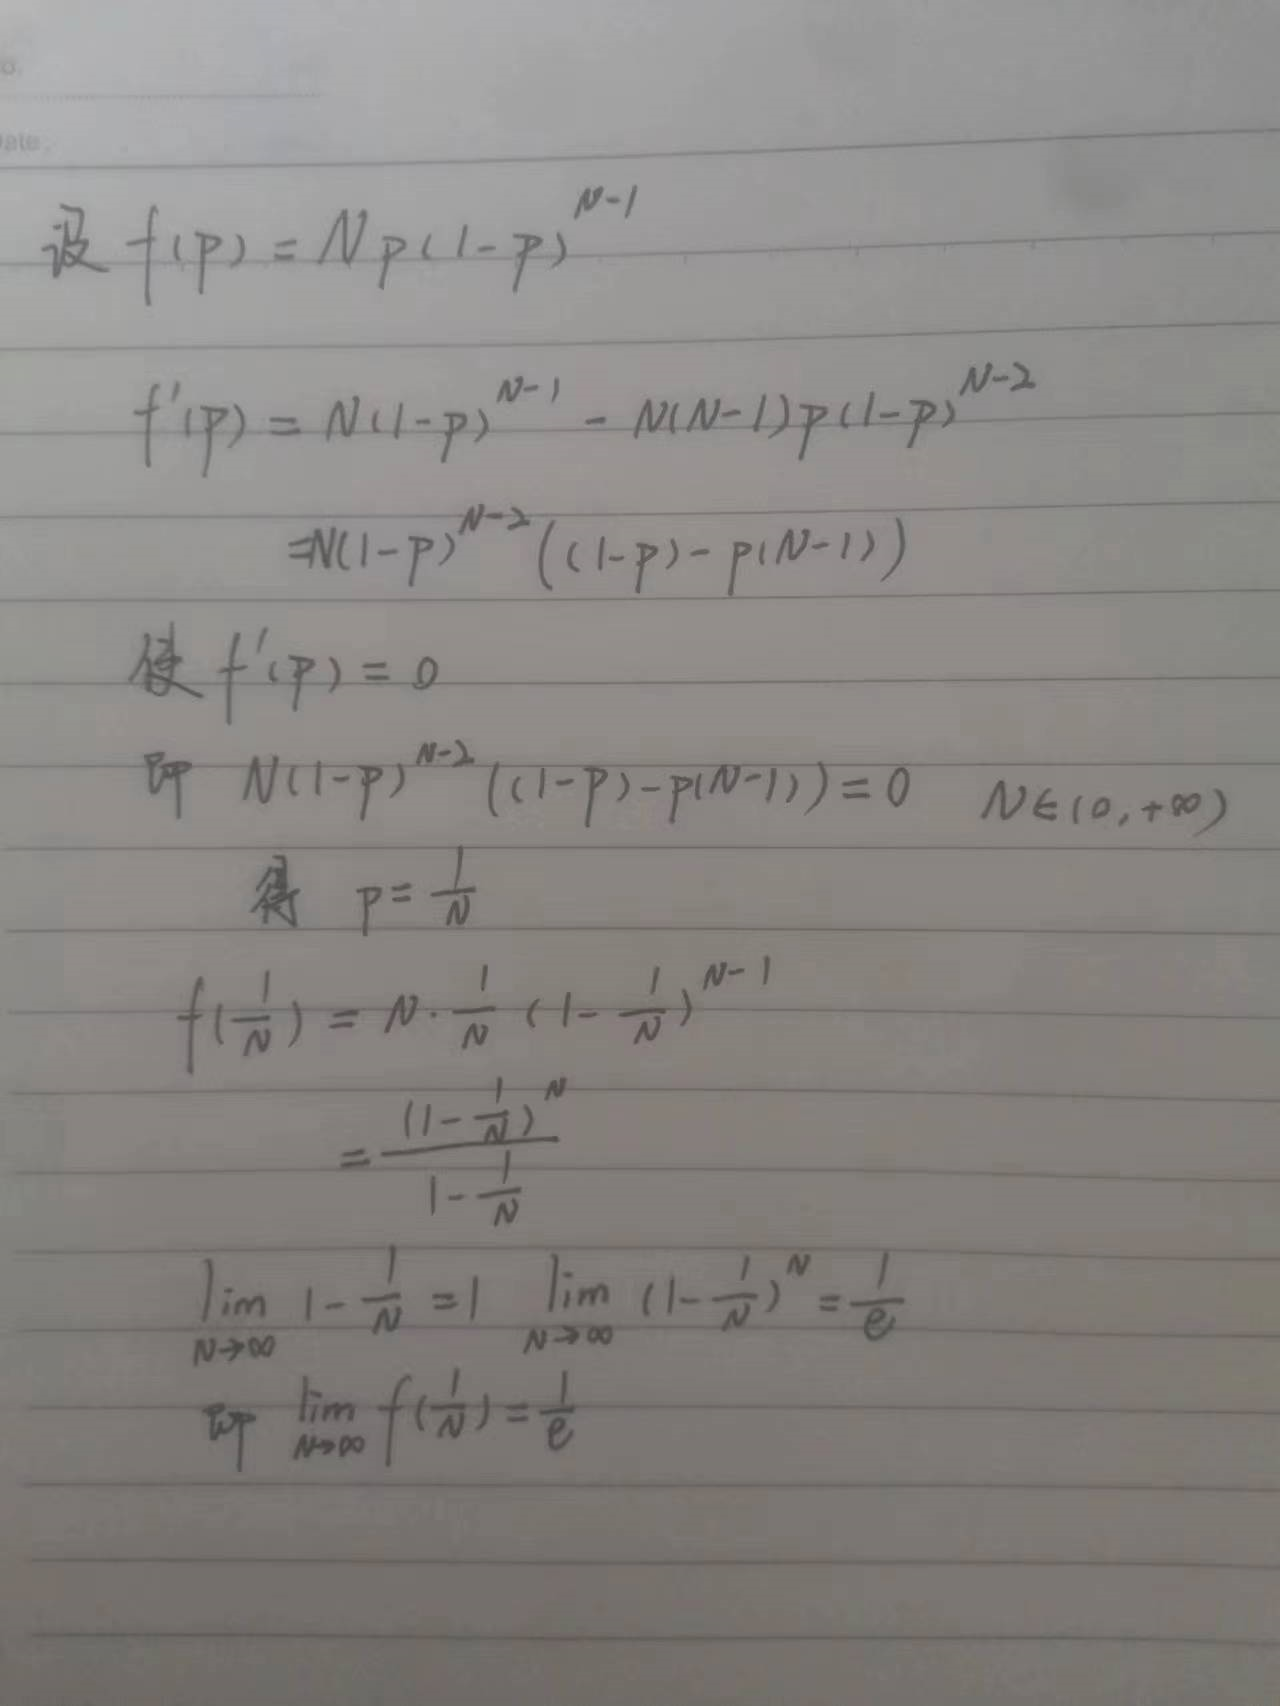 o.
Date:
设 f(p) = Np(1-p)^{N-1}
f'(p) = N(1-p)^{N-1} - N(N-1)p(1-p)^{N-2}
=N(1-p)^{N-2}((1-p)-p(N-1))
使 f'(p) = 0
即 N(1-p)^{N-2}((1-p)-p(N-1))=0 N∈(0,+∞)
得 p=\frac{1}{N}
f(\frac{1}{N}) = N·\frac{1}{N}(1-\frac{1}{N})^{N-1}
=\frac{(1-\frac{1}{N})^{N}}{1-\frac{1}{N}}
\lim_{N→∞} 1-\frac{1}{N}=1 \lim_{N→∞} (1-\frac{1}{N})^{N}=\frac{1}{e}
即 \lim_{N→∞} f(\frac{1}{N})=\frac{1}{e}